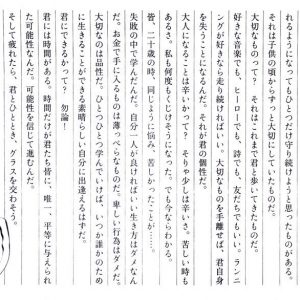 れるようになってもひとつだけ守り続けようと思ったものがある。
それは子供の頃からずっと大切にしていたものだ。
大切なものって？　それはこれまで君と歩いてきたものだ。
好きな音楽でも、ヒーローでも、詩でも、友だちでもいい。ランニ
ングが好きなら走り続ければいい。大切なものを手離せば、君自身
を失うことになるんだ。それが君の個性だ。
大人になることは辛いかって？　そりゃ少しは辛いさ。苦しい時も
あるさ。私も何度もくじけそうになった。でも今ならわかる。
皆、二十歳の時、同じように悩み、苦しかったことが……。
失敗の中で学んだんだ。自分一人が良ければいい生き方はダメなん
だ。お金で手に入るものは薄っぺらなものだ。卑しい行為はダメだ。
大切なのは品性だ。ひとつひとつ学んでいけば、いつか誰かのため
に生きることができる素晴らしい自分に出逢えるはずだ。
君にできるかって？　勿論！
君には時間がある。時間だけが君たち皆に、唯一、平等に与えられ
た可能性なんだ。可能性を信じて進むんだ。
そして疲れたら、君とひととき、グラスを交わそう。